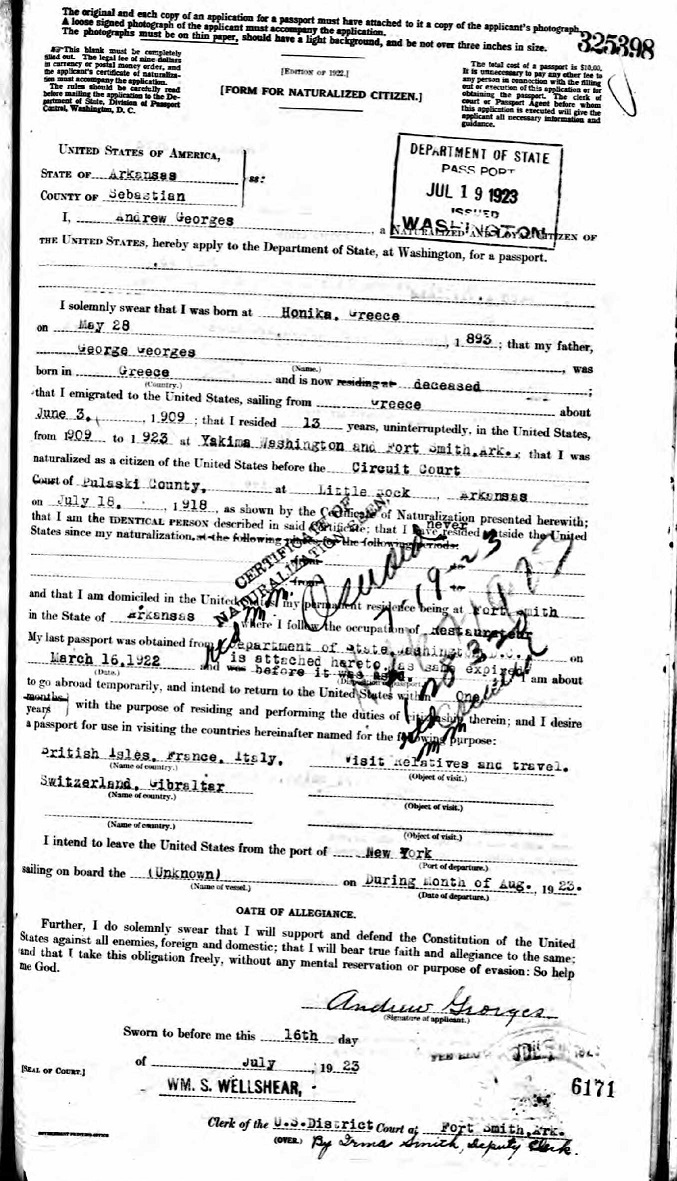 The original and each copy of an application for a passport must have attached to it a copy of the applicant's photograph.
A loose signed photograph of the applicant must accompany the application.
The photographs must be on thin paper, should have a light background, and be not over three inches in size.
325398
This blank must be completely
filled out. The legal fee of nine dollars
in currency or postal money order, and
the applicant's certificate of naturaliza-
tion must accompany the application.
The rules should be carefully read
before mailing the application to the De-
partment of State, Division of Passport
Control, Washington, D. C.
[EDITION OF 1922.]
[FORM FOR NATURALIZED CITIZEN.]
The total cost of a passport is $10.00.
It is unnecessary to pay any other fee to
any person in connection with the filling
out or execution of this application or for
obtaining the passport. The clerk of
court or Passport Agent before whom
this application is executed will give the
applicant all necessary information and
guidance.
DEPARTMENT OF STATE
PASSPORT
JUL 19 1923
ISSUED
WASHINGTON
UNITED STATES OF AMERICA,
STATE OF Arkansas
ss:
COUNTY OF Sebastian
I, Andrew Georges, a NATURALIZED AND LOYAL CITIZEN OF
THE UNITED STATES, hereby apply to the Department of State, at Washington, for a passport.
I solemnly swear that I was born at Honika, Greece
on May 28, 1893; that my father,
George Georges, was
(Name.)
born in Greece and is now residing at deceased;
(Country.)
that I emigrated to the United States, sailing from Greece about
June 3, 1909; that I resided 13 years, uninterruptedly, in the United States,
from 1909 to 1923 at Yakima Washington and Fort Smith, Ark.; that I was
naturalized as a citizen of the United States before the Circuit Court
Court of Pulaski County, at Little Rock, Arkansas
on July 18, 1918, as shown by the Certificate of Naturalization presented herewith;
that I am the IDENTICAL PERSON described in said Certificate; that I have never resided outside the United
States since my naturalization, at the following places, for the following periods:
CERTIFICATE OF
NATURALIZATION SEEN.
7-19-23
and that I am domiciled in the United States, my permanent residence being at Fort Smith
in the State of Arkansas where I follow the occupation of Restaurateur
My last passport was obtained from Department of State, Washington D.C. on
March 16, 1922 and was is attached hereto, as same expired
before it was used. I am about
(Date.)
to go abroad temporarily, and intend to return to the United States within One
months
years
with the purpose of residing and performing the duties of citizenship therein; and I desire
a passport for use in visiting the countries hereinafter named for the following purpose:
British Isles, France, Italy, Visit Relatives and travel.
(Name of country.) (Object of visit.)
Switzerland, Gibraltar
(Name of country.) (Object of visit.)
(Name of country.) (Object of visit.)
I intend to leave the United States from the port of New York
(Port of departure.)
sailing on board the (Unknown) on During Month of Aug., 1923.
(Name of vessel.) (Date of departure.)
OATH OF ALLEGIANCE.
Further, I do solemnly swear that I will support and defend the Constitution of the United
States against all enemies, foreign and domestic; that I will bear true faith and allegiance to the same;
and that I take this obligation freely, without any mental reservation or purpose of evasion: So help
me God.
Andrew Georges
(Signature of applicant.)
Sworn to before me this 16th day
of July, 1923
[SEAL OF COURT.]
WM. S. WELLSHEAR,
6171
Clerk of the U.S. District Court at Fort Smith, Ark.
(OVER.) By Irma Smith, Deputy Clerk.
GOVERNMENT PRINTING OFFICE